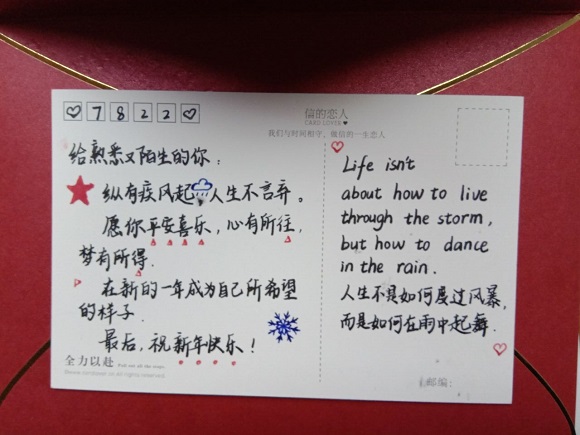 ♡ 7 8 2 2 ♡
信的恋人
CARD LOVER♥
我们与时间相守，做信的一生恋人
给熟悉又陌生的你：
纵有疾风起 人生不言弃。
愿你平安喜乐，心有所往，
梦有所得.
在新的一年成为自己所希望
的样子.
最后，祝新年快乐！
全力以赴
Life isn't
about how to live
through the storm,
but how to dance
in the rain.
人生不是如何度过风暴，
而是如何在雨中起舞.
邮编: